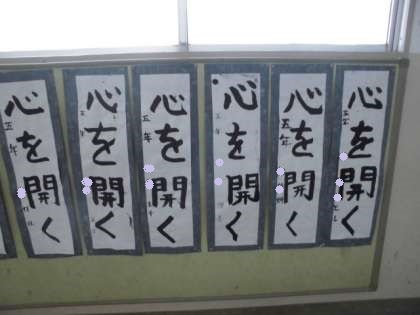 心を開く
五年
心を開く
心を開く
五年
心を開く
心を開く
五年
心を開く